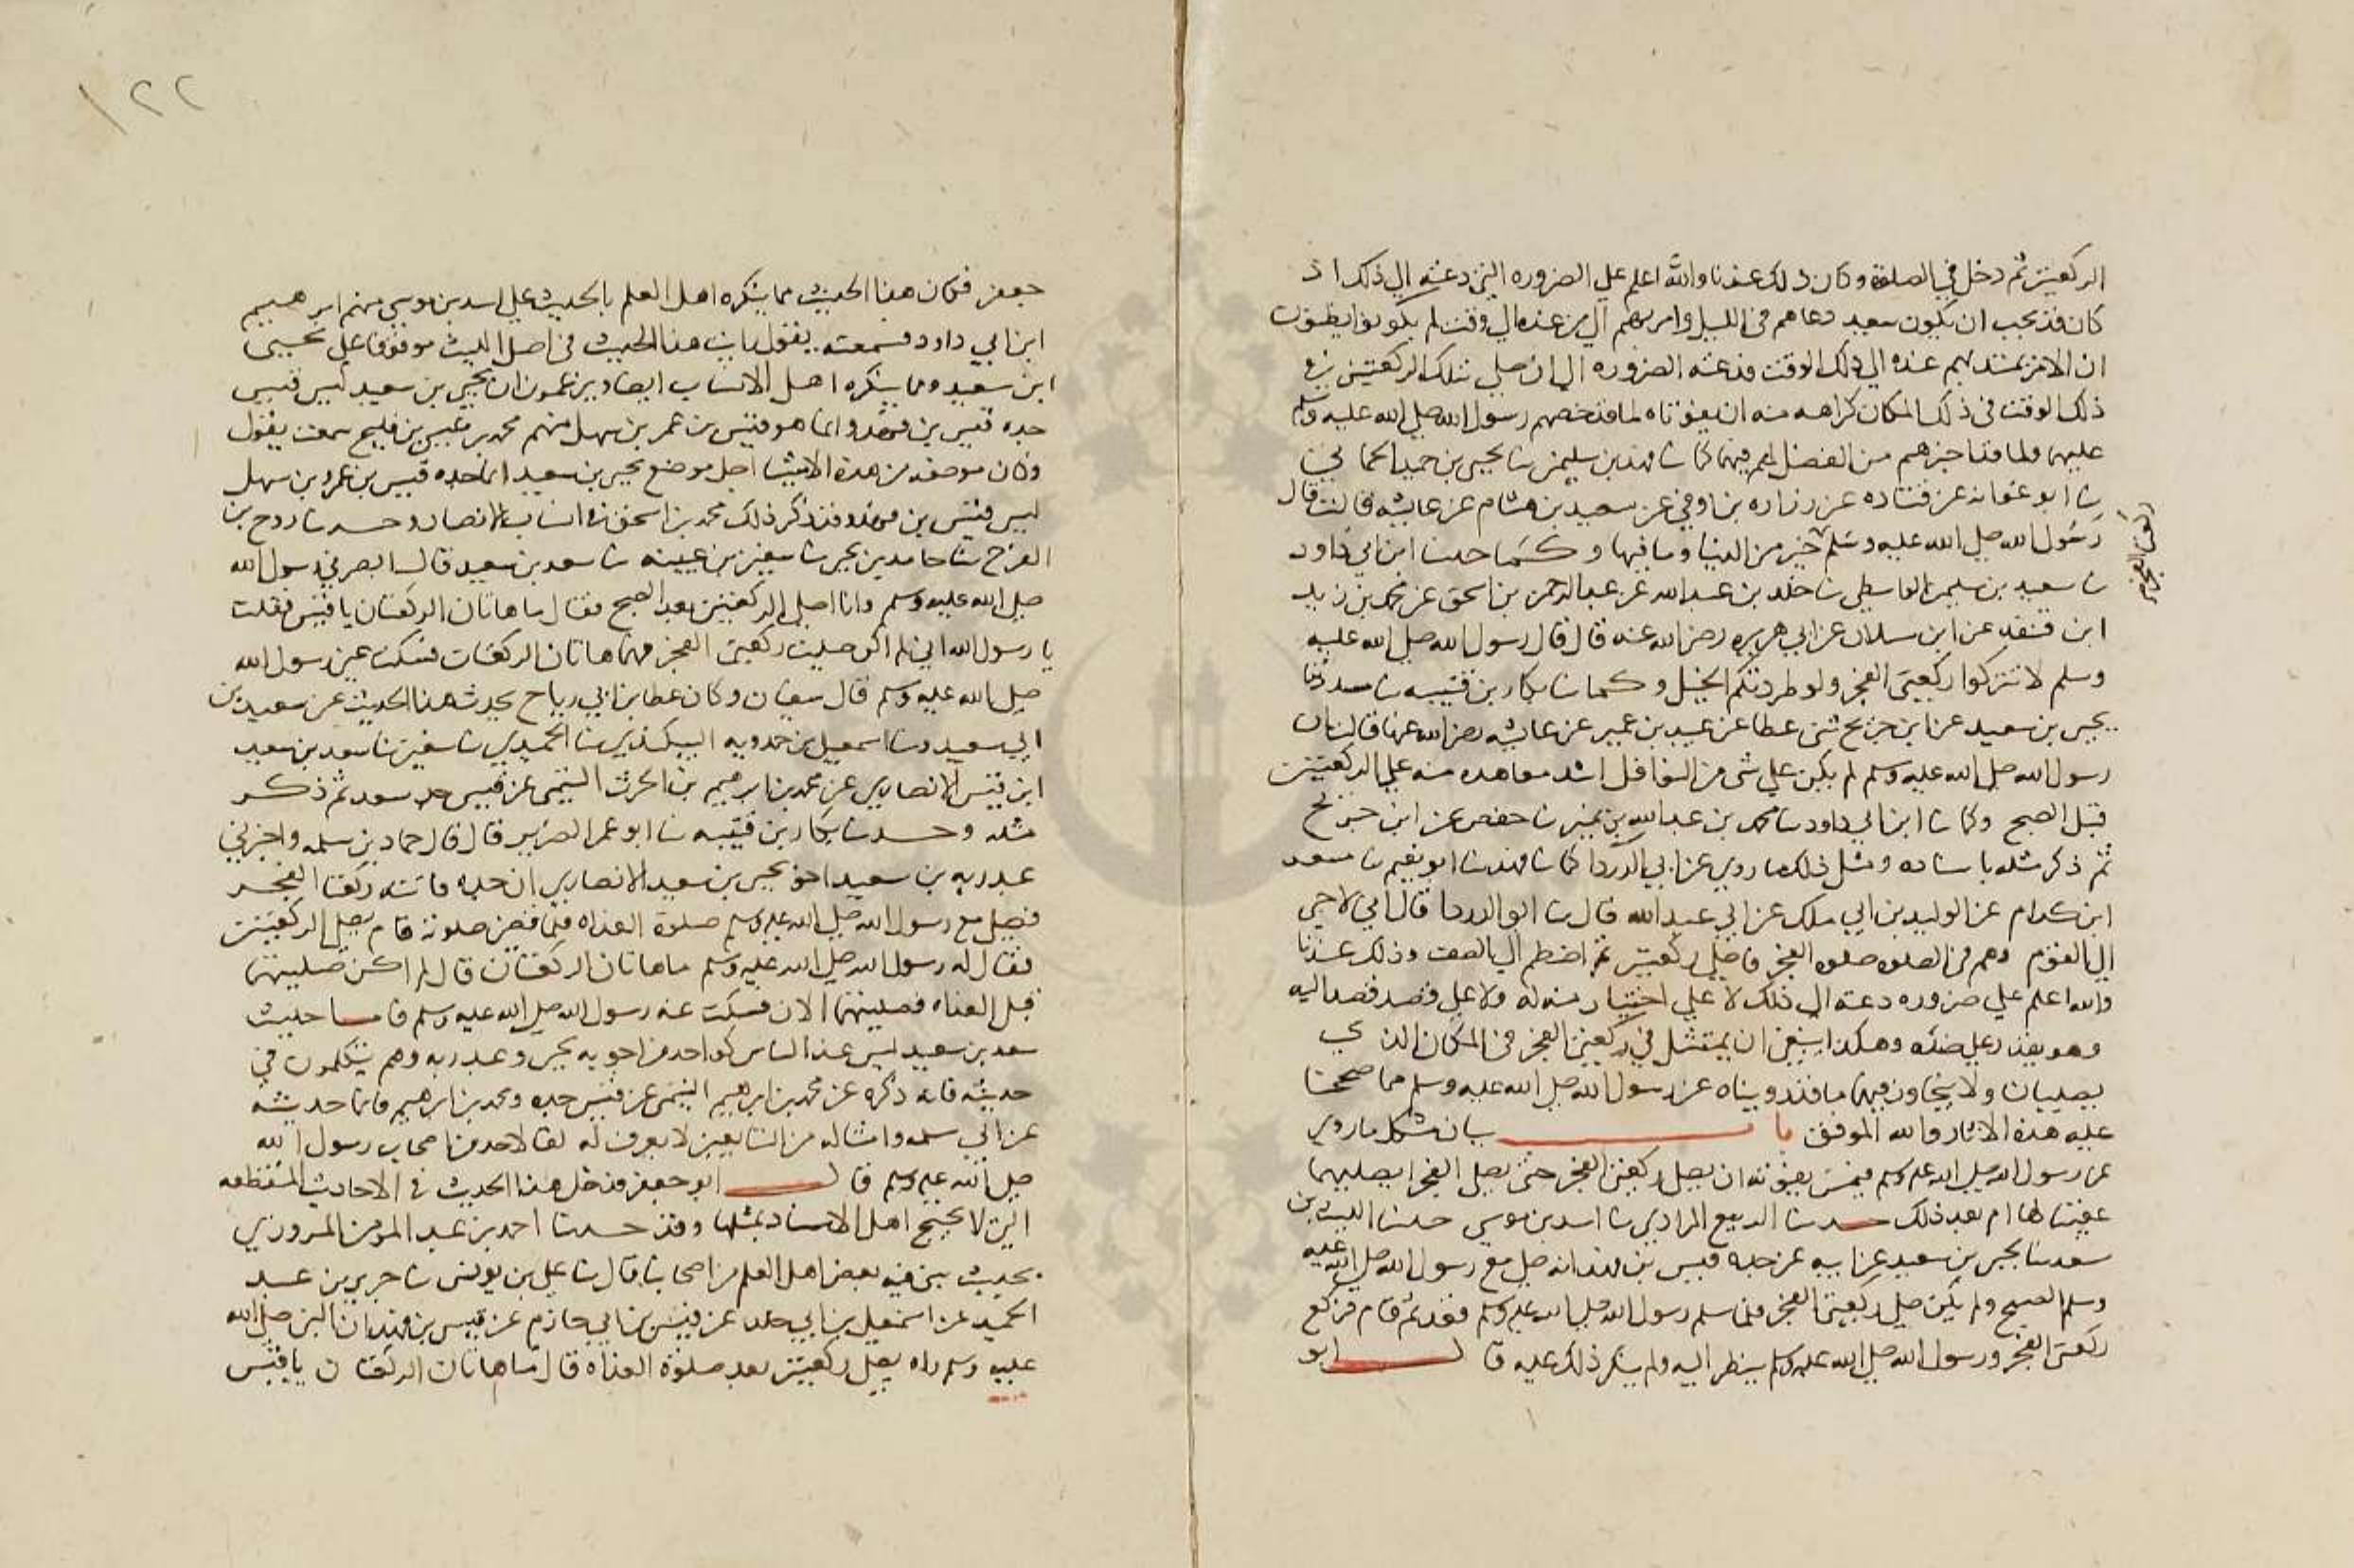 الركعتين ثم دخل في الصلوة وكان ذلك عندنا والله اعلم على الضروره التي دعته الى ذلك اذ
كان قد يجب ان يكون سعيد دعاهم في الليل وامرهم الى من عنده الى وقت لم يكونوا يظنون
ان الامر يمتد بهم عنده الى ذلك الوقت فدعته الضروره الى ان صلى تلك الركعتين في
ذلك الوقت في ذلك المكان كراهه منه ان يفوتاه لما قد خصهم رسول الله صلى الله عليه وسلم
عليهما ولما قد اخبرهم من الفضل لهم فيهما كما نا فهد بن سليمن نا يحيى بن حميد الحماني
نا ابو عوانه عن قتاده عن زراره بن اوفى عن سعيد بن هشام عن عايشه قالت قال
رسول الله صلى الله عليه وسلم خير من الدنيا وما فيها وكما حدثنا ابن ابي داود
ركعتا الفجر
نا سعيد بن سليمن الواسطي نا خلد بن عبد الله عن عبد الرحمن بن اسحق عن محمد بن زيد
ابن قنفد عن ابن سيلان عن ابي هريره رضي الله عنه قال قال رسول الله صلى الله عليه
وسلم لا تتركوا ركعتي الفجر ولو طردتكم الخيل وكما نا بكار بن قتيبه نا مسدد نا
يحيى بن سعيد عن ابن جريج ثنى عطا عن عبيد بن عمير عن عايشه رضي الله عنها قالت ان
رسول الله صلى الله عليه وسلم لم يكن على شي من النوافل اشد معاهده منه على الركعتين
قبل الصبح وكما نا ابن ابي داود نا محمد بن عبد الله بن نمير نا حفص عن ابن جريج
ثم ذكر مثله باسناده ومثل ذلك ما روي عن ابي الدردا كما نا فهد نا ابو نعيم نا مسعر
ابن كدام عن الوليد بن ابي ملك عن ابي عبيد الله قال نا ابو الدردا قال اني لاجي
الى القوم وهم في الصلوه صلوه الفجر فاصلي ركعتين ثم اضطم الى الصف وذلك عندنا
والله اعلم على ضروره دعته الى ذلك لا على اختيار منه له ولا على قصد قصد اليه
وهو يقدر على ضده وهكذا ينبغي ان يمتثل في ركعتي الفجر في المكان الذي
يصليان ولا يتجاوز فيهما ما قد رويناه عن رسول الله صلى الله عليه وسلم مما صححنا
عليه هذه الاثار والله الموفق باب بيان مشكل ما روي
عن رسول الله صلى الله عليه وسلم فيمن يفوته ان يصلي ركعتي الفجر حتى يصلي الفجر ايصليهما
عقيبا لها ام بعد ذلك حدثنا الربيع المرادي نا اسد بن موسى حدثنا الليث بن
سعد نا يحيى بن سعيد عن ابيه عن جده قيس بن فهد انه صلى مع رسول الله صلى الله عليه
وسلم الصبح ولم يكن صلى ركعتي الفجر فلما سلم رسول الله صلى الله عليه وسلم فقد ثم قام فركع
ركعتي الفجر ورسول الله صلى الله عليه وسلم ينظر اليه ولم ينكر ذلك عليه قال ابو
١٢٢
جعفر فكان هذا الحديث مما ينكره اهل العلم بالحديث على اسد بن موسى منهم ابرهيم
ابن ابي داود فسمعته يقول رايت هذا الحديث في اصل الليث موقوفا على يحيى
ابن سعيد ومما ينكره اهل الانساب ايضا ويزعمون ان يحيى بن سعيد ليس قيس
جده قيس بن فهد وانما هو قيس بن عمر بن سهل منهم محمد بن عيسى بن فليح سمعت يقول
وكان موضعه من هذه الاشيا اجل موضع يحيى بن سعيد انما جده قيس بن عمرو بن سهل
ليس قيس بن فهد وقد ذكر ذلك محمد بن اسحق في انساب الانصار وحدثنا روح بن
الفرج نا حامد بن يحيى نا سفين بن عيينه نا سعد بن سعيد قال ابصرني رسول الله
صلى الله عليه وسلم وانا اصلي الركعتين بعد الصبح فقال ما هاتان الركعتان يا قيس فقلت
يا رسول الله اني لم اكن صليت ركعتي الفجر فهما هاتان الركعتان فسكت عني رسول الله
صلى الله عليه وسلم قال سفيان وكان عطا بن ابي رباح يحدث هذا الحديث عن سعيد بن
ابي سعيد ونا اسمعيل بن حمدويه البيكندي نا الحميدي نا سفين نا سعد بن سعيد
ابن قيس الانصاري عن محمد بن ابرهيم بن الحرث التيمي عن قيس جد سعد ثم ذكر
مثله وحدثنا بكار بن قتيبه نا ابو عمر الضرير قال قال حماد بن سلمه واخبرني
عبد ربه بن سعيد اخو يحيى بن سعيد الانصاري ان جده فاتته ركعتا الفجر
فصلى مع رسول الله صلى الله عليه وسلم صلوة الغداه فلما قضى صلوته قام يصلي الركعتين
فقال له رسول الله صلى الله عليه وسلم ما هاتان الركعتان قال لم اكن صليتهما
قبل الغداه فصليتهما الان فسكت عنه رسول الله صلى الله عليه وسلم فاما حديث
سعد بن سعيد ليس عند الناس كواحد من اخويه يحيى وعبد ربه وهم يتكلمون في
حديثه فانه ذكره عن محمد بن ابرهيم التيمي عن قيس جده ومحمد بن ابرهيم فانما حديثه
عن ابي سلمه وامثاله من التابعين لا يعرف له لقا لاحد من اصحاب رسول الله
صلى الله عليه وسلم قال ابو جعفر فدخل هذا الحديث في الاحاديث المنقطعه
التي لا يحتج اهل الاسناد بمثلها وقد حدثنا احمد بن عبد المومن المروزي
بحديث بين فيه بعض اهل العلم من اصحابنا قال نا علي بن يونس نا جرير بن عبد
الحميد عن اسمعيل بن ابي خلد عن قيس بن ابي حازم عن قيس بن فهد ان النبي صلى الله
عليه وسلم راه يصلي ركعتين بعد صلوة الغداه قال ما هاتان الركعتان يا قيس